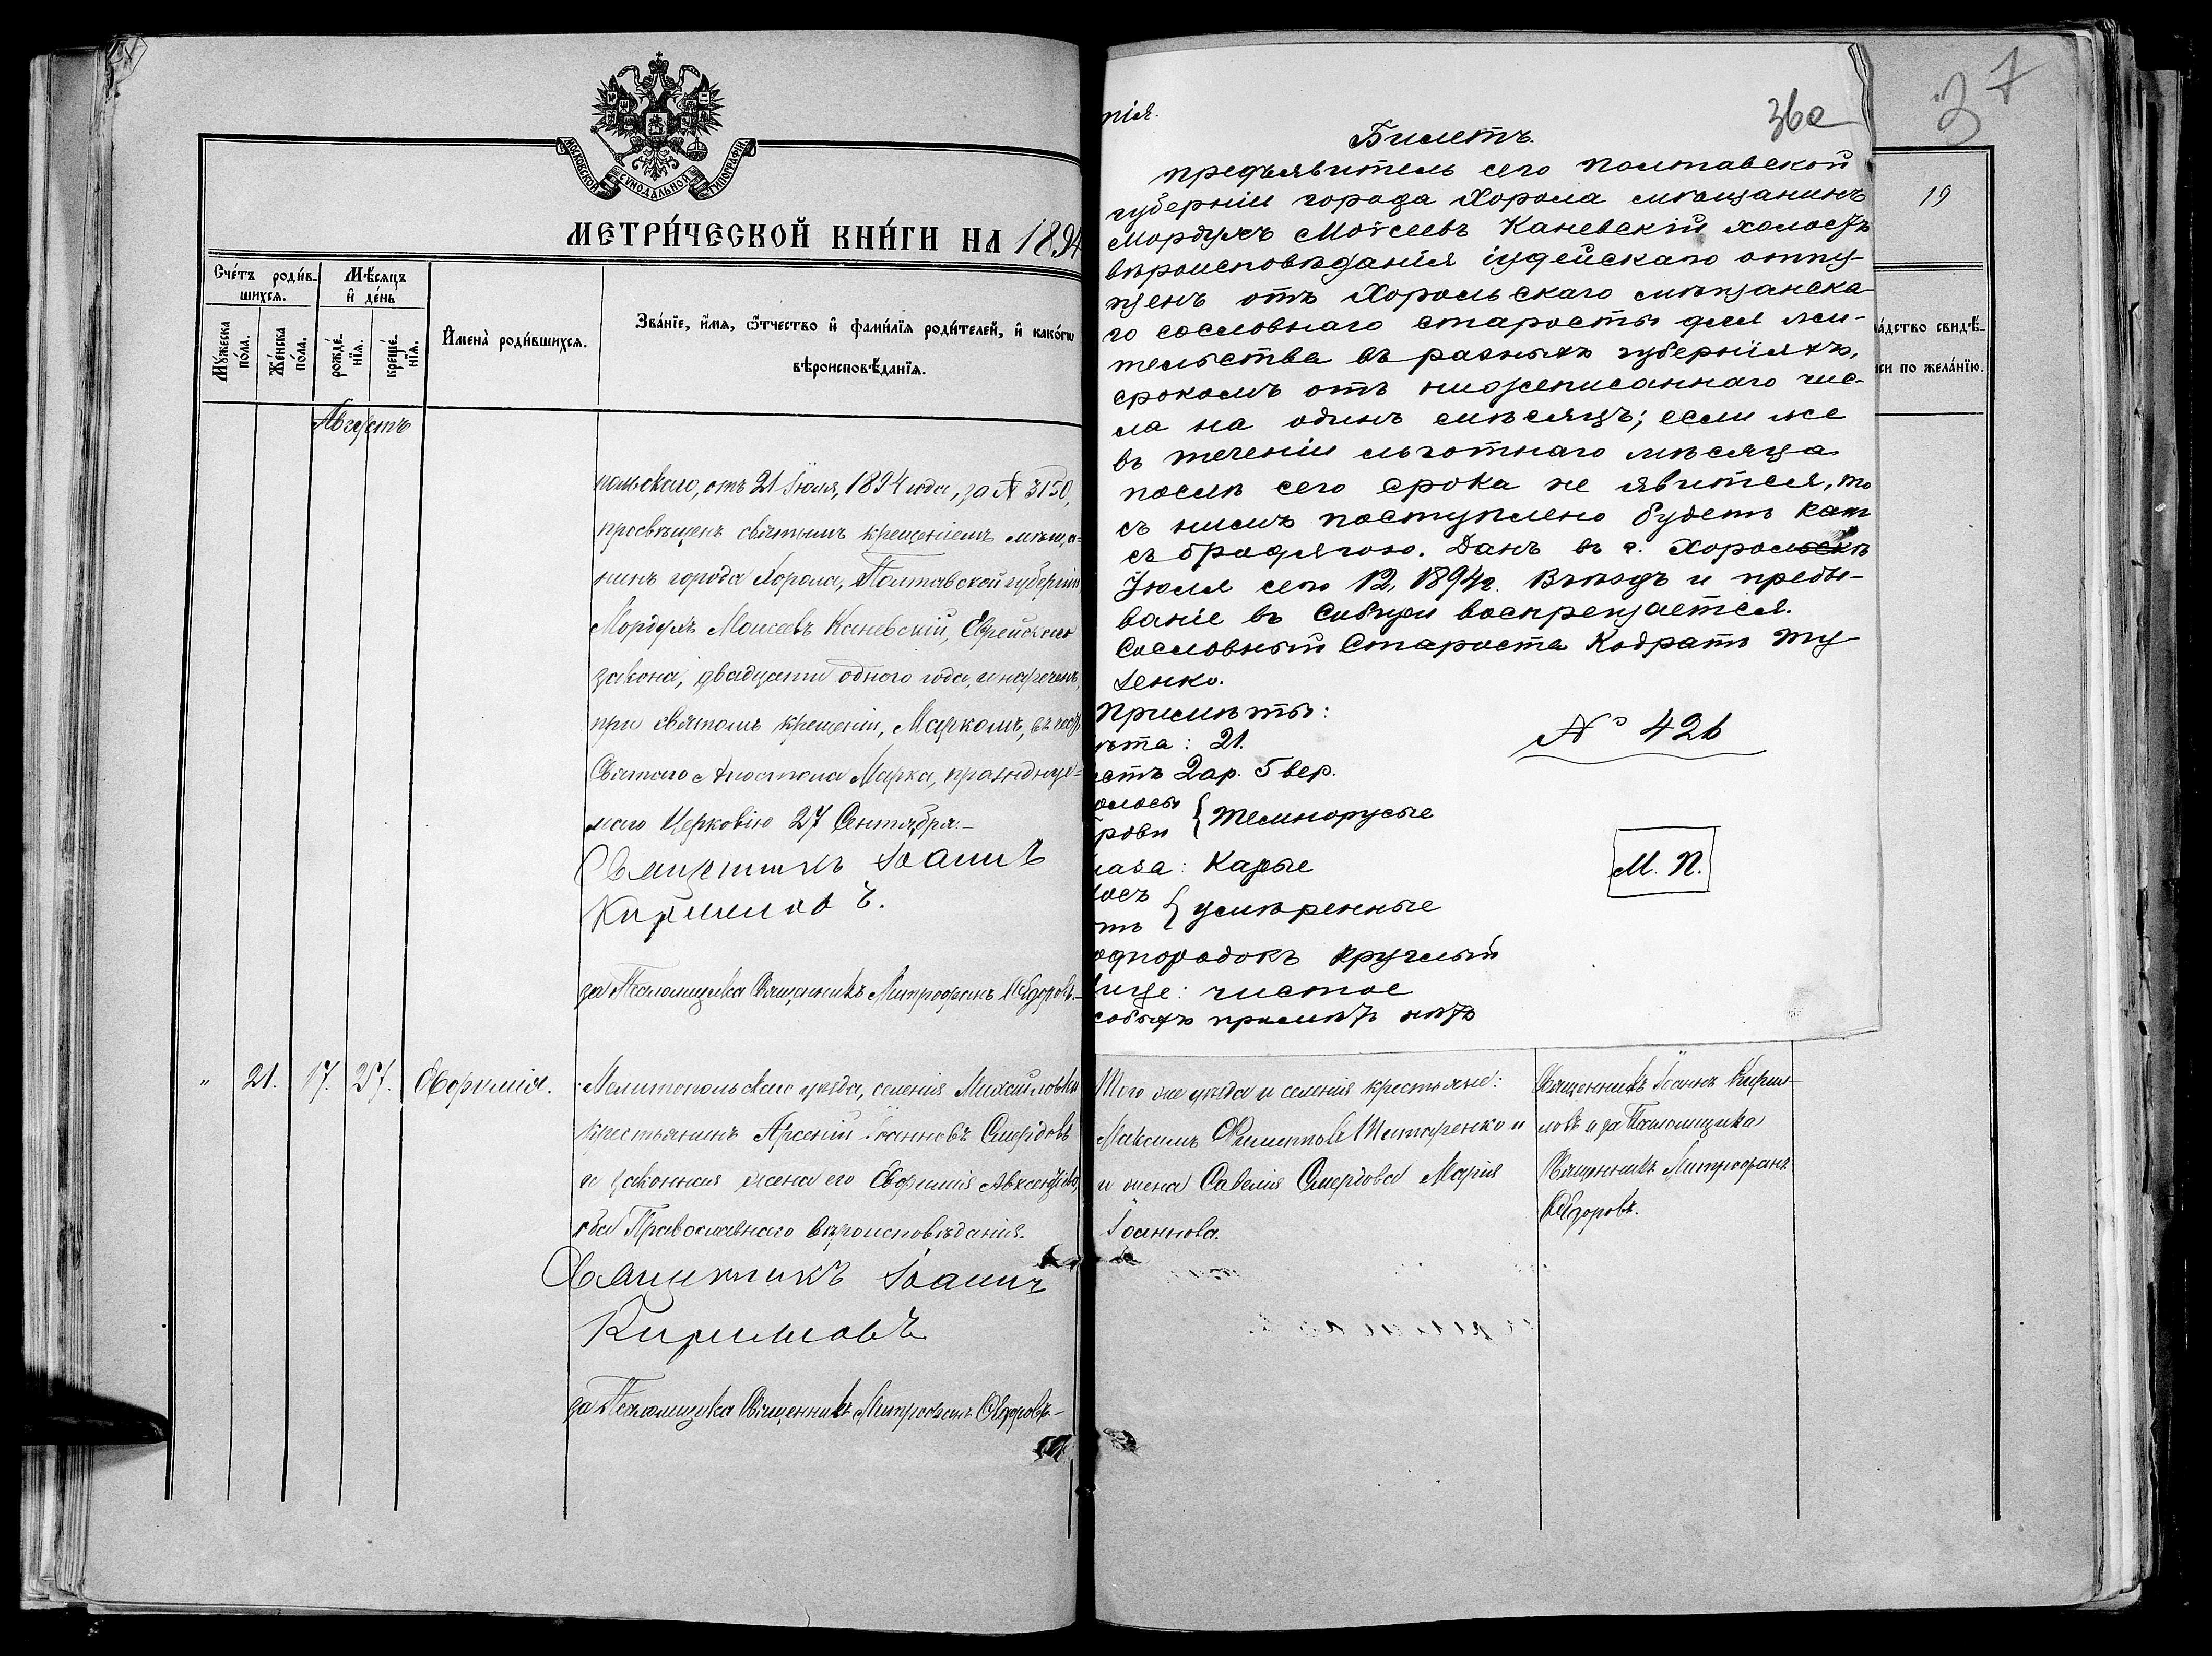 МОСКОВСКОЙ СѴНОДАЛЬНОЙ ТИПОГРАФІИ
МЕТРИ́ЧЕСКОЙ КНИ́ГИ НА 1894
Сче́тъ роди́в-
шихся.
Мѣ́сяцъ
и҆ де́нь
Мꙋ́жеска
по́ла.
Же́нска
по́ла.
рожде́-
нїѧ.
креще́-
нїѧ.
И҆мена̀ роди́вшихся.
Зва́нїе, и҆́мя, ѻ҆́тчество и҆ фами́лїя роди́телей, и҆ како́гѡ
вѣроисповѣ́данїя.
Августъ
польскаго, отъ 21 Іюля, 1894 года, за № 3150,
просвѣщенъ святымъ крещеніемъ мѣща-
нинъ города Хорола, Полтавской губерніи,
Мордухъ Моисеевъ Каневскій, Еврейскаго
закона, двадцати одного года, и нареченъ,
при святомъ крещеніи, Маркомъ, въ честь
Святаго Апостола Марка, празднуе-
маго Церковію 27 Сентября.-
Священникъ Іоаннъ
Кирилловъ.
за Псаломщика Священникъ Митрофанъ Ѳедоровъ.-
" 21. 17. 27. Евфимія.
Мелитопольскаго уѣзда, селенія Михайловки
крестьянинъ Арсеній Іоанновъ Смердовъ
и законная жена его Евфимія
оба Православнаго вѣроисповѣданія.
Священникъ Іоаннъ
Кирилловъ
за Псаломщика Священникъ Митрофанъ Ѳедоровъ-
нія.
36а
37
Билетъ.
предъявитель сего Полтавской
губерніи города Хорола мѣщанинъ
Мордухъ Моисеевъ Каневскій холостъ
вѣроисповѣданія іудейскаго отпу-
щенъ отъ Хорольскаго мѣщанска-
го сословнаго старосты для жи-
тельства въ разныхъ губерніяхъ,
срокомъ отъ нижеписаннаго чис-
ла на одинъ мѣсяцъ; если же
въ теченіи льготнаго мѣсяца
послѣ сего срока не явится, то
съ нимъ поступлено будетъ какъ
съ бродягою. Данъ въ г. Хоролѣ
Іюля сего 12, 1894г. Въѣздъ и пребы-
ваніе въ Сибири воспрещается.
Сословный Староста Кодратъ
енко.
Примѣты:
ѣта: 21.
остъ 2ар. 5вер.
олосы
рови { темнорусые
лаза: Карые
осъ
тъ { умѣренные
одбородокъ круглый
ице: чистое
собыхъ примѣтъ нѣтъ
№ 426
М. П.
19
а́дство свидѣ́-
си по жела́нїю.
Того же уѣзда и селенія крестьяне:
Максимъ Филипповъ Титаренко и
и жена Савелія Смердова Марія
Іоаннова.
Священникъ Іоаннъ Кирил-
ловъ и за Псаломщика
Священникъ Митрофанъ
Ѳедоровъ.